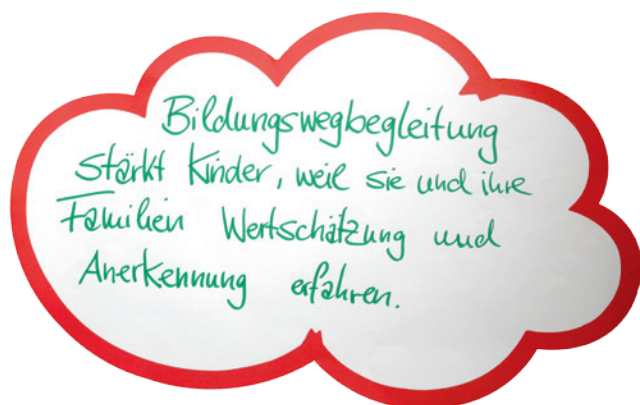 Bildungswegbegleitung
stärkt Kinder, weil sie und ihre
Familien Wertschätzung und
Anerkennung erfahren.